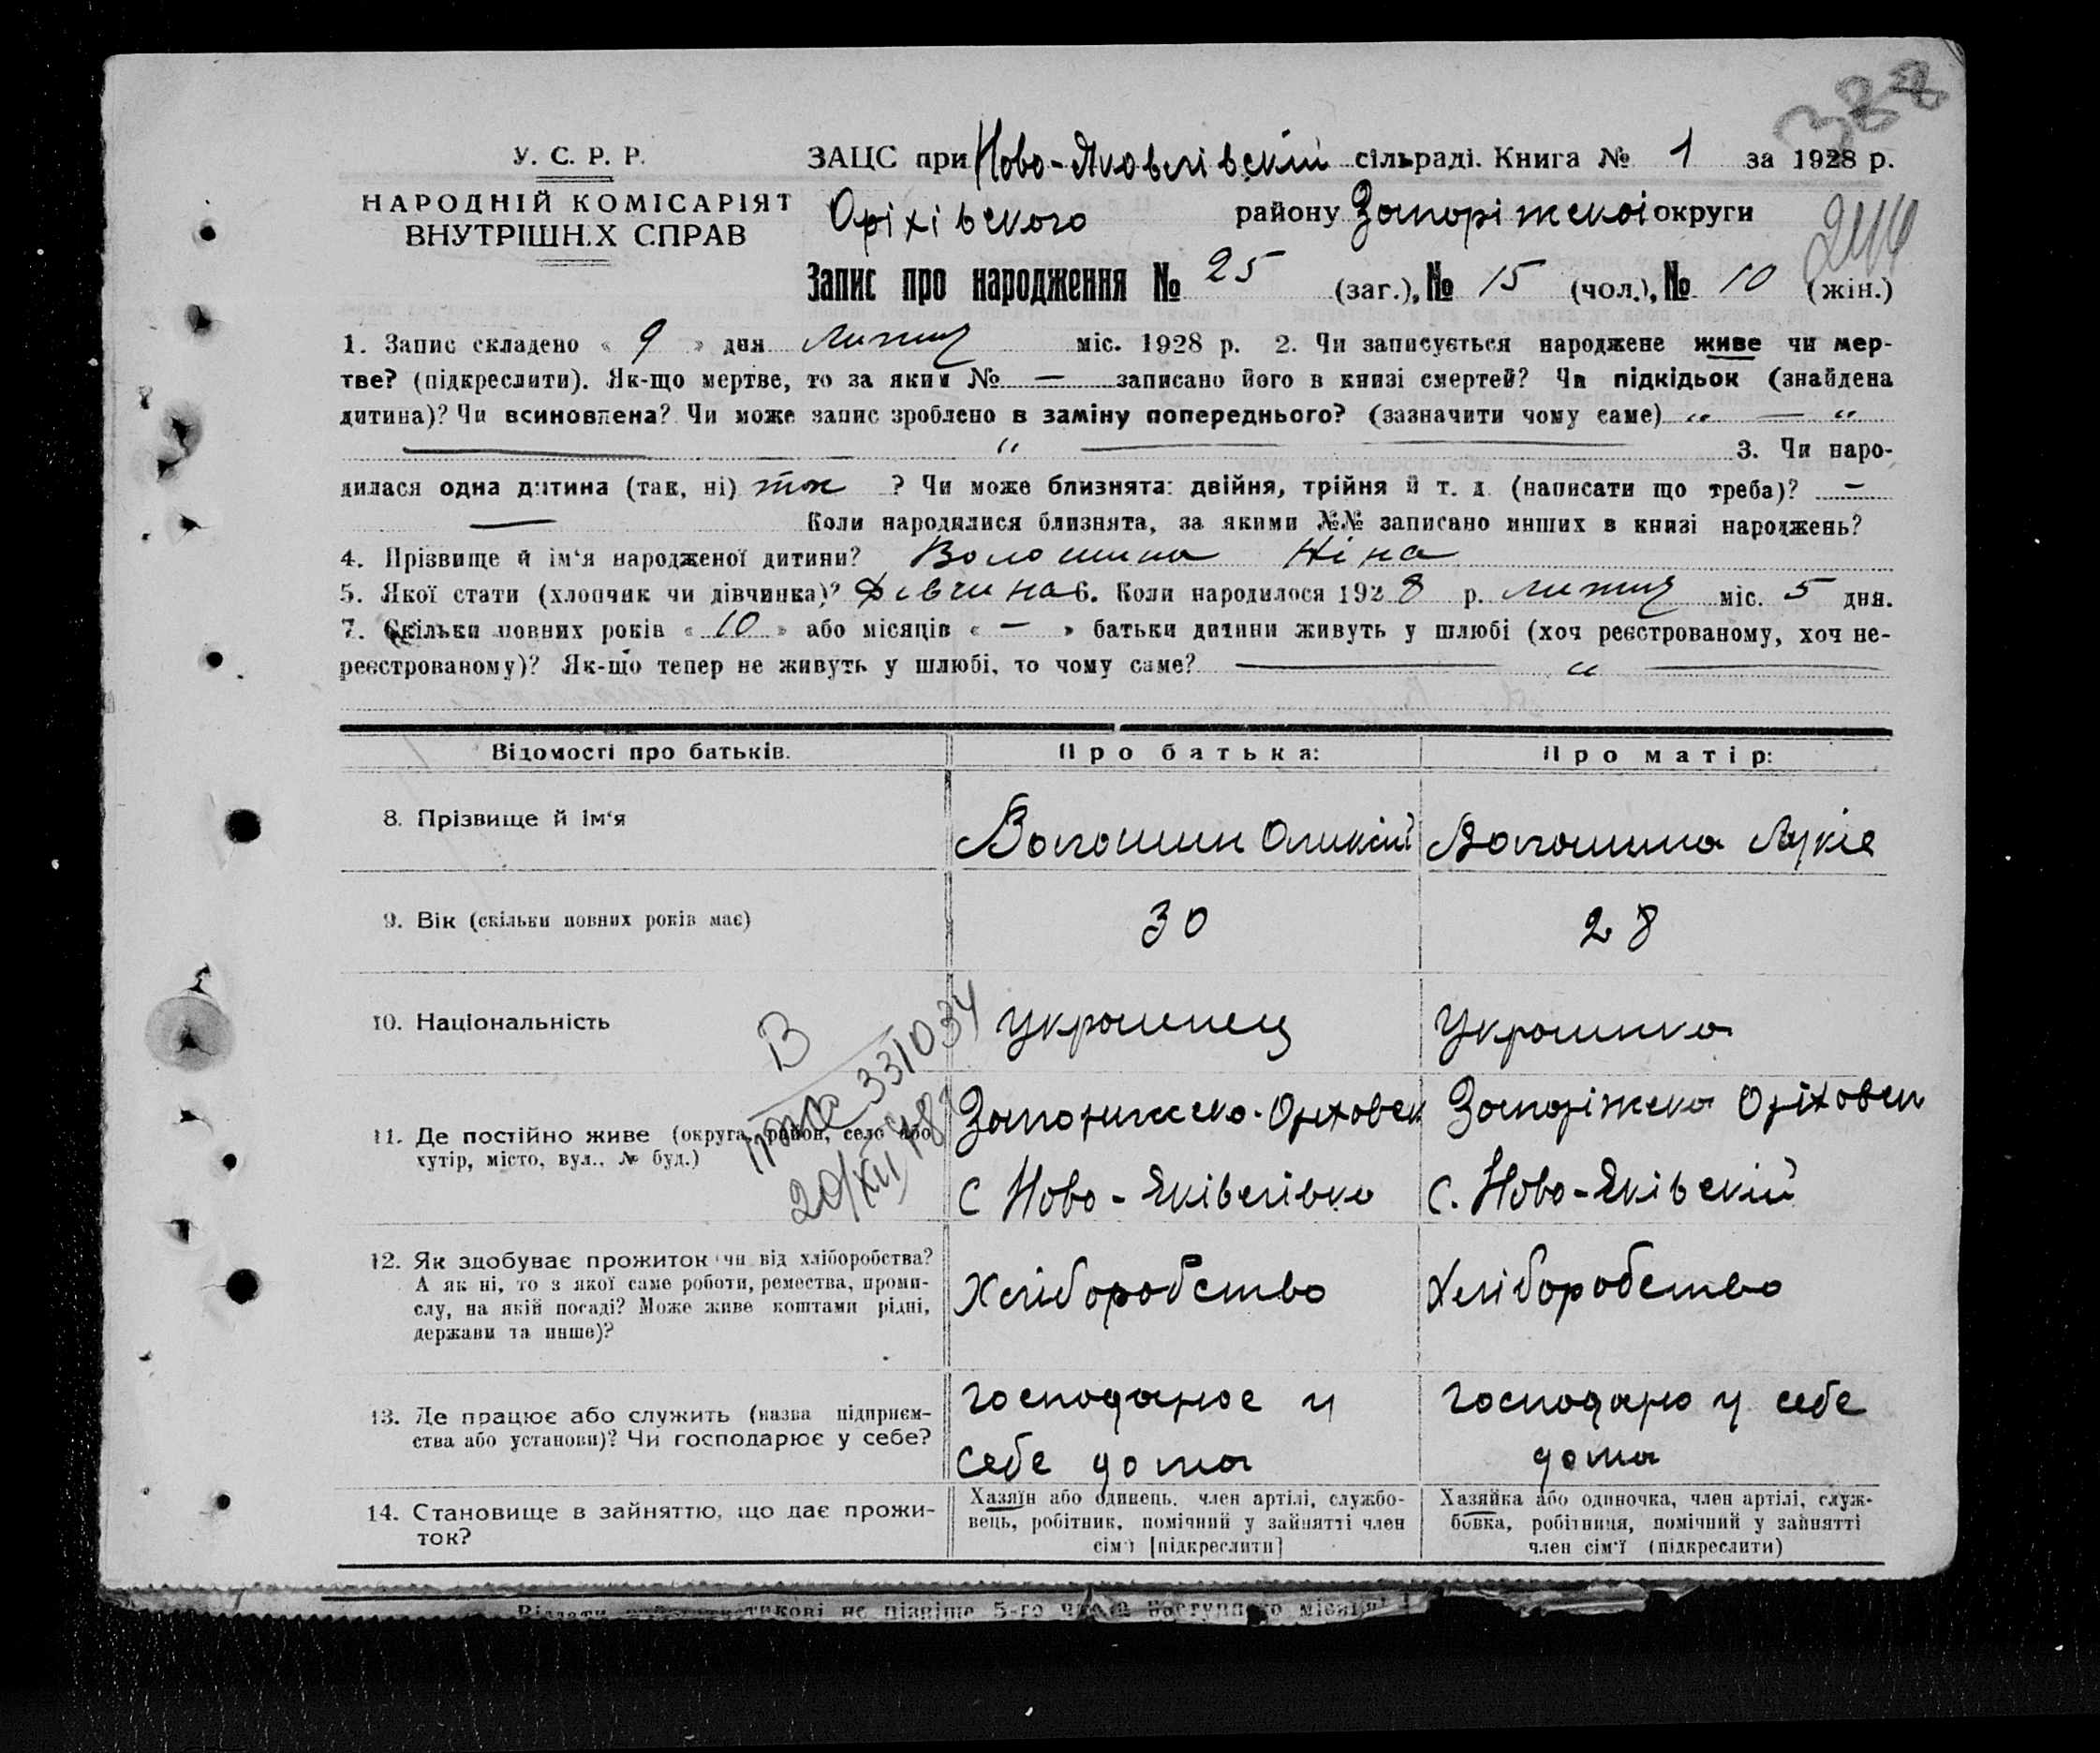 388
У. С. Р. Р.
НАРОДНІЙ КОМІСАРІЯТ
ВНУТРІШН.Х СПРАВ
ЗАЦС при Ново-Яковлівскій сільраді. Книга № 1 за 1928 р.
Оріхівского району Запоріжскоі округи
Запис про народження № 25 (заг.), № 15 (чол.), № 10 (жін.)
1. Запис складено « 9 » дня липня міс. 1928 р. 2. Чи записується народжене живе чи мер-
тве? (підкреслити). Як-що мертве, то за яким № — записано його в книзі смертей? Чи підкідьок (знайдена
дитина)? Чи всиновлена? Чи може запис зроблено в заміну попереднього? (зазначити чому саме) „ — “
— “ — 3. Чи наро-
дилася одна дитина (так, ні) так ? Чи може близнята: двійня, трійня й т. д. (написати що треба)? —
— Коли народилися близнята, за якими №№ записано инших в книзі народжень?
4. Прізвище й ім‘я народженої дитини? Волошина Ніна
5. Якої стати (хлопчик чи дівчинка)? Дівчина 6. Коли народилося 1928 р. липня міс. 5 дня.
7. Скільки повних років « 10 » або місяців « — » батьки дитини живуть у шлюбі (хоч реєстрованому, хоч не-
реєстрованому)? Як-що тепер не живуть у шлюбі, то чому саме? — “ —
Відомості про батьків. Про батька: Про матір:
8. Прізвище й ім‘я Волошин Оликсій Волошина Лукіа
9. Вік (скільки повних років має) 30 28
10. Національність украинец Украинка
В
331034
20/XII 48
11. Де постійно живе (округа, район, село або
хутір, місто, вул., № буд.)
Запорижско-Орховск
с Ново-Яківлівка
Запоріжска Оріховск
с. Ново-Яківскій
12. Як здобуває прожиток (чи від хліборобства?
А як ні, то з якої саме роботи, ремества, проми-
слу, на якій посаді? Може живе коштами рідні,
держави та инше)?
Хліборобство Хліборобство
13. Де працює або служить (назва підприєм-
ства або установи)? Чи господарює у себе?
господарює у
себе дома
господарю у себе
дома
14. Становище в зайняттю, що дає прожи-
ток?
Хазяїн або одинець, член артілі, службо-
вець, робітник, помічний у зайнятті член
сім‘ї [підкреслити]
Хазяйка або одиночка, член артілі, служ-
бовка, робітниця, помічний у зайнятті
член сім‘ї (підкреслити)
не пізніше 5-го числа наступного місяця!